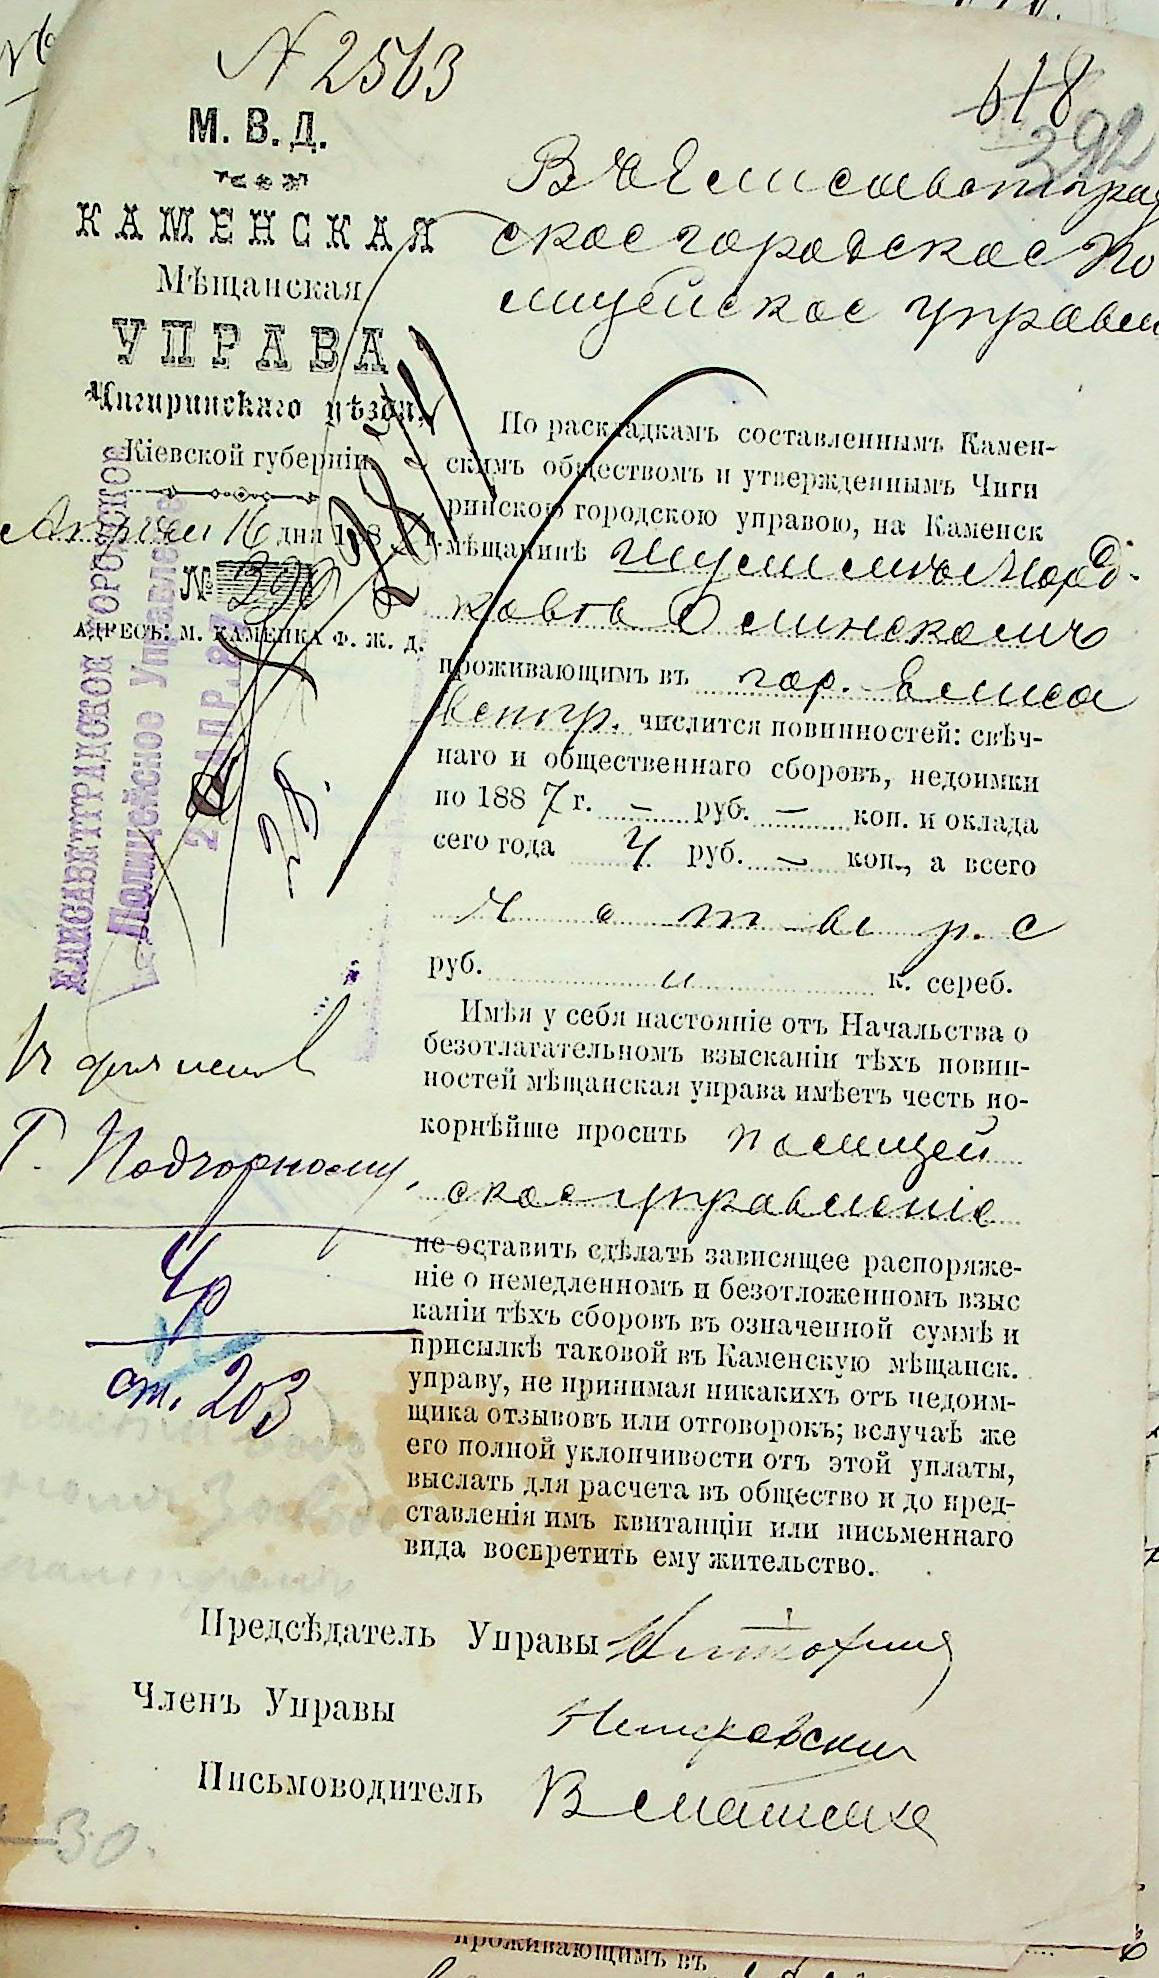 № 2563
618
392
М. В. Д.
КАМЕНСКАЯ
Мѣщанская
УПРАВА
Чигиринскаго уѣзда,
Кіевской губерніи
Апрѣля 16 дня 188 г.
№ 390
АДРЕСЪ: м. КАМЕНКА Ф. Ж. Д.
ЕЛИСАВЕТГРАДСКОЕ ГОРОДСКОЕ
Полицейское Управленіе
АПР. 8
В Елисаветград
ское городское По
лицейское управлен
По раскладкамъ составленнымъ Камен-
скимъ обществомъ и утвержденнымъ Чиги
ринскою городскою управою, на Каменск
мѣщанинѣ Морд-
ковѣ
проживающимъ въ гор. Елиса
ветгр. числится повинностей: свѣч-
наго и общественнаго сборовъ, недоимки
по 1887 г. — руб. — коп. и оклада
сего года 4 руб. — коп., а всего
четыре
руб. и к. сереб.
Имѣя у себя настояніе отъ Начальства о
безотлагательномъ взысканіи тѣхъ повин-
ностей мѣщанская управа имѣетъ честь по-
корнѣйше просить полицей
ское управленіе
не оставить сдѣлать зависящее распоряже-
ніе о немедленномъ и безотложенномъ взыс
каніи тѣхъ сборовъ въ означенной суммѣ и
присылкѣ таковой въ Каменскую мѣщанск.
управу, не принимая никакихъ отъ недоим-
щика отзывовъ или отговорокъ; вслучаѣ же
его полной уклончивости отъ этой уплаты,
выслать для расчета въ общество и до пред-
ставленія имъ квитанціи или письменнаго
вида воспретить ему жительство.
Г. Подгорному
4р
ст. 203
Предсѣдатель Управы
Членъ Управы
Письмоводитель
30.
проживающимъ въ